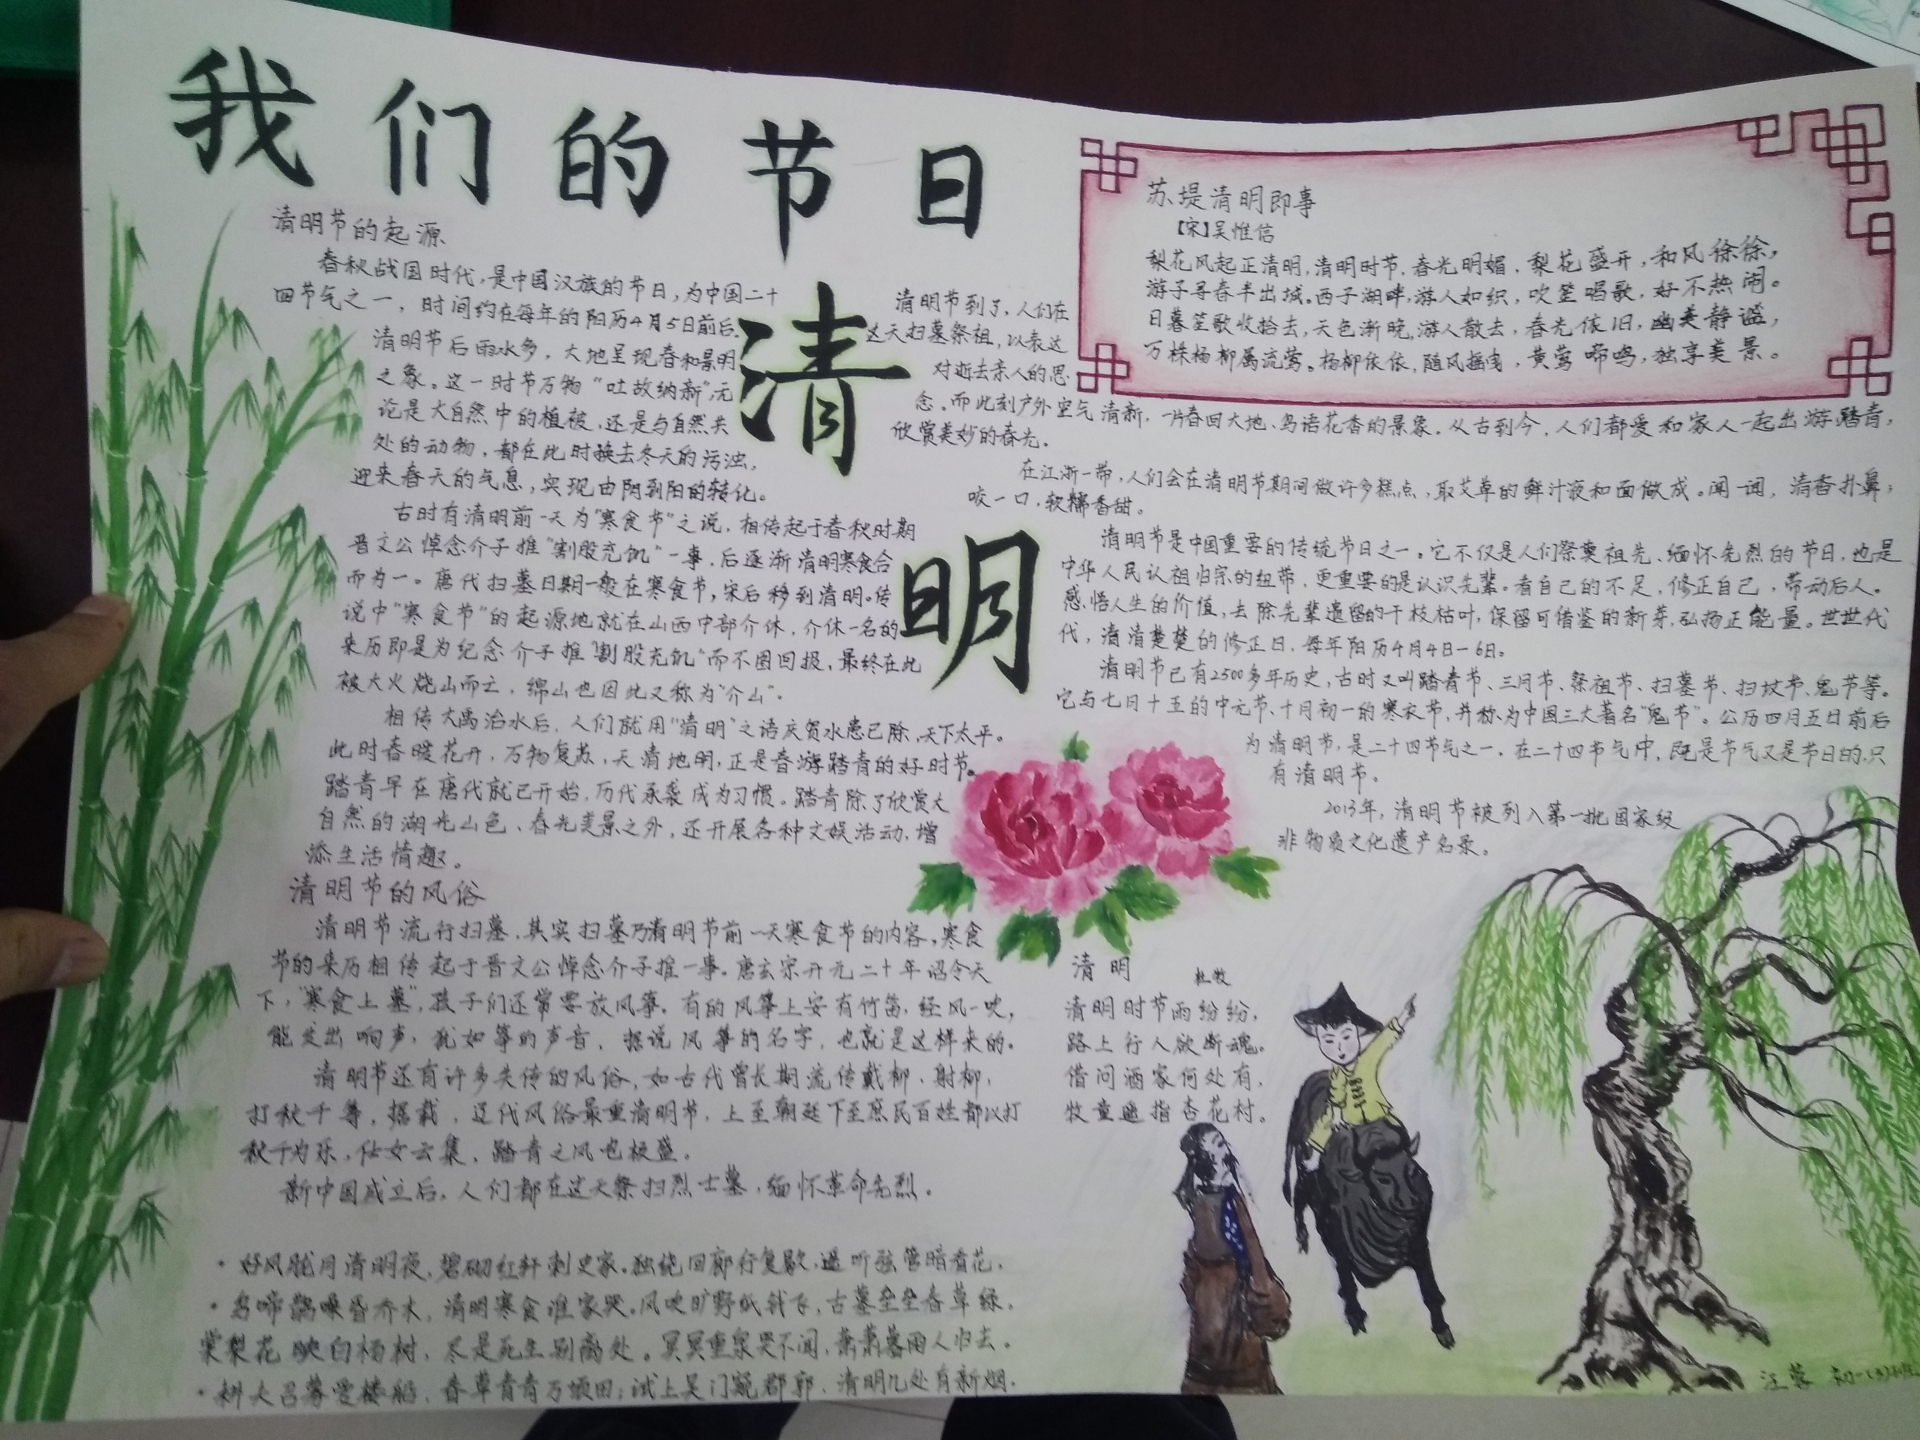 我们的节日
清明
清明节的起源
春秋战国时代，是中国汉族的节日，为中国二十
四节气之一，时间约在每年的阳历4月5日前后。
清明节后雨水多，大地呈现春和景明
之象。这一时节万物“吐故纳新”，无
论是大自然中的植被，还是与自然共
处的动物，都在此时换去冬天的污浊，
迎来春天的气息，实现由阴到阳的转化。
古时有清明前一天为“寒食节”之说，相传起于春秋时期
晋文公悼念介子推“割股充饥”一事，后逐渐清明寒食合
而为一。唐代扫墓日期一般在寒食节，宋后移到清明。传
说中“寒食节”的起源地就在山西中部介休，介休一名的
来历即是为纪念介子推“割股充饥”而不图回报，最终在此
被大火烧山而亡，绵山也因此又称为“介山”。
相传大禹治水后，人们就用“清明”之语庆贺水患已除，天下太平。
此时春暖花开，万物复苏，天清地明，正是春游踏青的好时节。
踏青早在唐代就已开始，历代承袭成为习惯。踏青除了欣赏大
自然的湖光山色、春光美景之外，还开展各种文娱活动，增
添生活情趣。
清明节的风俗
清明节流行扫墓，其实扫墓乃清明节前一天寒食节的内容，寒食
节的来历相传起于晋文公悼念介子推一事。唐玄宗开元二十年诏令天
下，“寒食上墓”，孩子们还常要放风筝。有的风筝上安有竹笛，经风一吹，
能发出响声，犹如筝的声音，据说风筝的名字，也就是这样来的。
清明节还有许多失传的风俗，如古代曾长期流传戴柳，射柳，
打秋千等，据载，辽代风俗最重清明节，上至朝廷下至庶民百姓都以打
秋千为乐，仕女云集，踏青之风也极盛。
新中国成立后，人们都在这天祭扫烈士墓，缅怀革命先烈。
·好风胧月清明夜，碧砌红轩刺史家。独绕回廊行复歇，遥听弦管暗看花。
·鸟啼鹊噪昏乔木，清明寒食谁家哭。风吹旷野纸钱飞，古墓垒垒春草绿。
棠梨花映白杨树，尽是死生别离处。冥冥重泉哭不闻，萧萧暮雨人归去。
·耕人召募爱楼船，春草青青万顷田；试上吴门窥郡郭，清明几处有新烟。
苏堤清明即事
【宋】吴惟信
梨花风起正清明，清明时节，春光明媚，梨花盛开，和风徐徐，
游子寻春半出城。西子湖畔，游人如织，吹笙唱歌，好不热闹。
日暮笙歌收拾去，天色渐晚，游人散去，春光依旧，幽美静谧，
万株杨柳属流莺。杨柳依依，随风摇曳，黄莺啼鸣，独享美景。
清明节到了，人们在
这天扫墓祭祖，以表达
对逝去亲人的思
念。而此刻户外空气清新，一片春回大地、鸟语花香的景象。从古到今，人们都爱和家人一起出游踏青，
欣赏美妙的春光。
在江浙一带，人们会在清明节期间做许多糕点，取艾草的鲜汁液和面做成。闻一闻，清香扑鼻；
咬一口，软糯香甜。
清明节是中国重要的传统节日之一。它不仅是人们祭奠祖先、缅怀先烈的节日，也是
中华人民认祖归宗的纽带，更重要的是认识先辈。看自己的不足，修正自己，带动后人。
感悟人生的价值，去除先辈遗留的干枝枯叶，保留可借鉴的新芽，弘扬正能量。世世代
代，清清楚楚的修正日，每年阳历4月4日-6日。
清明节已有2500多年历史，古时又叫踏青节、三月节、祭祖节、扫墓节、扫坟节、鬼节等。
它与七月十五的中元节、十月初一的寒衣节，并称为中国三大著名“鬼节”。公历四月五日前后
为清明节，是二十四节气之一，在二十四节气中，既是节气又是节日的，只
有清明节。
2013年，清明节被列入第一批国家级
非物质文化遗产名录。
清明
杜牧
清明时节雨纷纷，
路上行人欲断魂。
借问酒家何处有，
牧童遥指杏花村。
初一(3)班